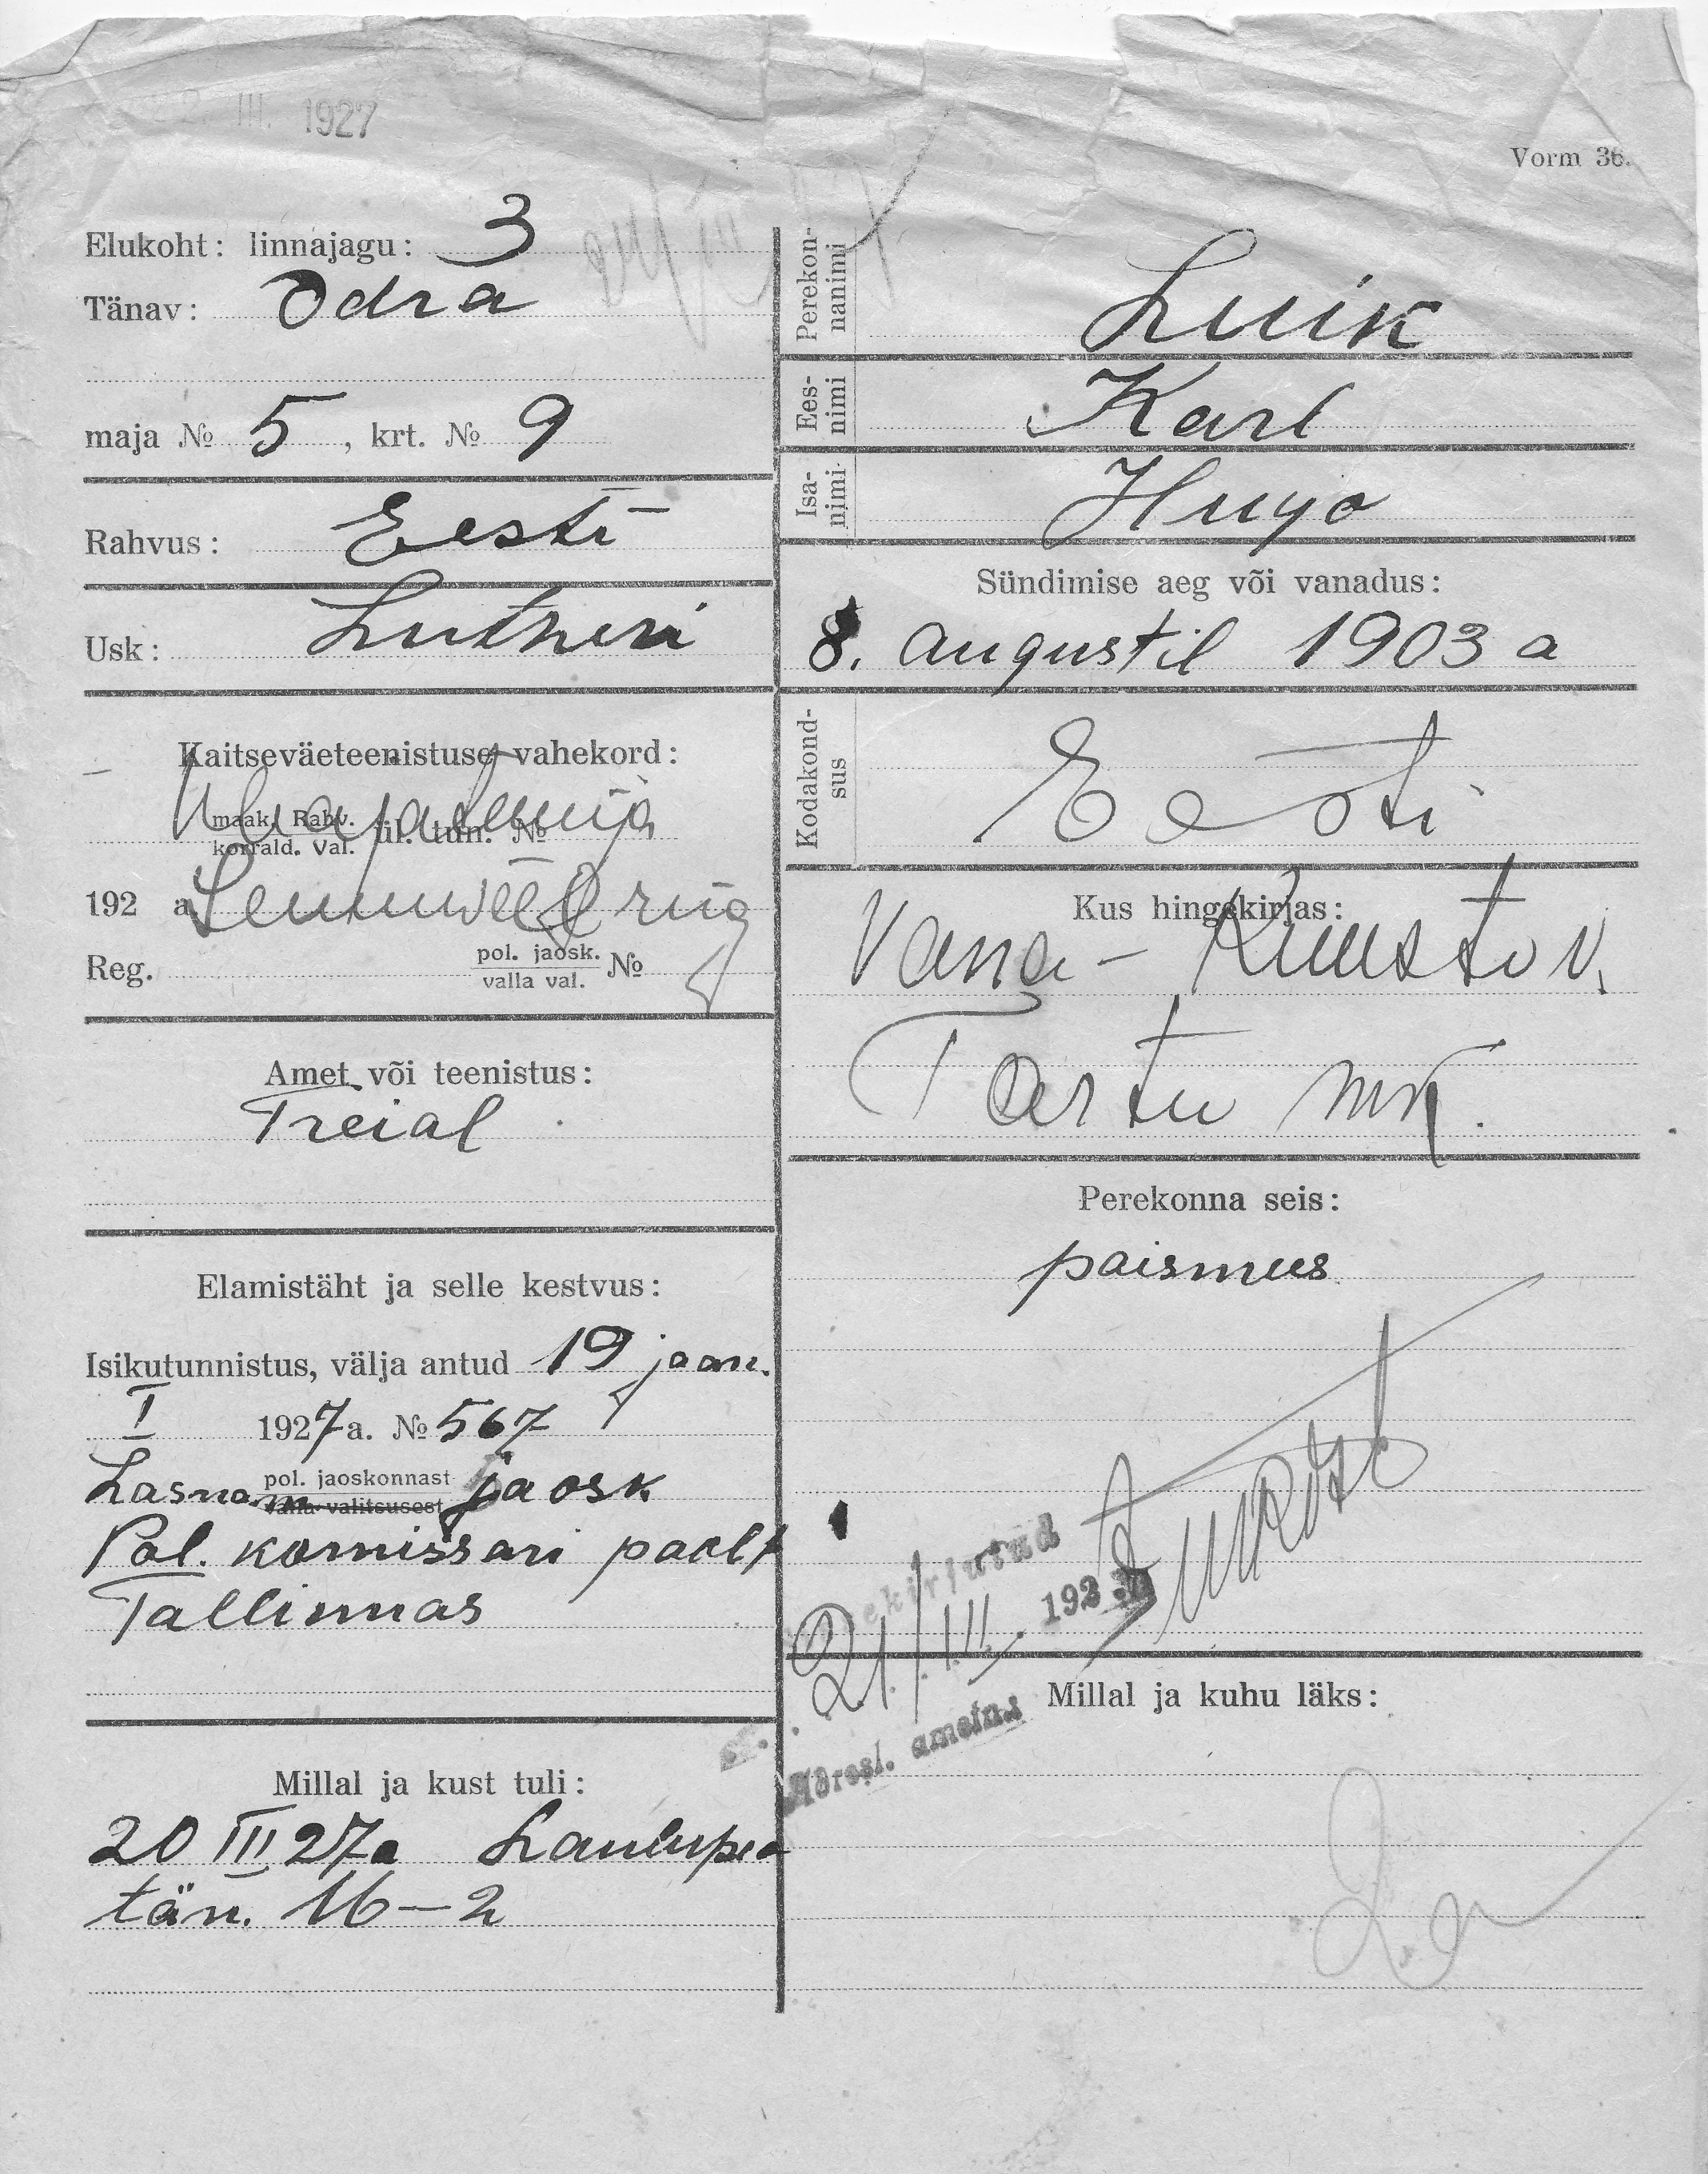 III. 1927
Vorm 36.
Elukoht: linnajagu: 3
Tänav: Odra
maja № 5, krt. № 9
Rahvus: Eesti
Usk: Lutheri
Kaitseväeteenistuse vahekord:
maak. Rahv.
korrald. Val. ül. tun. №
192 a.
Reg. pol. jaosk.
valla val. №
Amet või teenistus:
Treial
Elamistäht ja selle kestvus:
Isikutunnistus, välja antud 19 jaan.
I 1927 a. № 567
Lasnam pol. jaoskonnast jaosk
valla-valitsusest
Pol. komissari poolt
Tallinnas
Millal ja kust tuli:
20 III 27a Laulupea
tän. 16-2
Perekon-
nanimi Luik
Ees-
nimi Karl
Isa-
nimi Hugo
Sündimise aeg või vanadus:
8. augustil 1903 a
Kodakond-
sus Eesti
Kus hingekirjas:
Vana-Kuuste v.
Tartu mk.
Perekonna seis:
poismees
21/III. 192
Adresl. ametns
Millal ja kuhu läks: